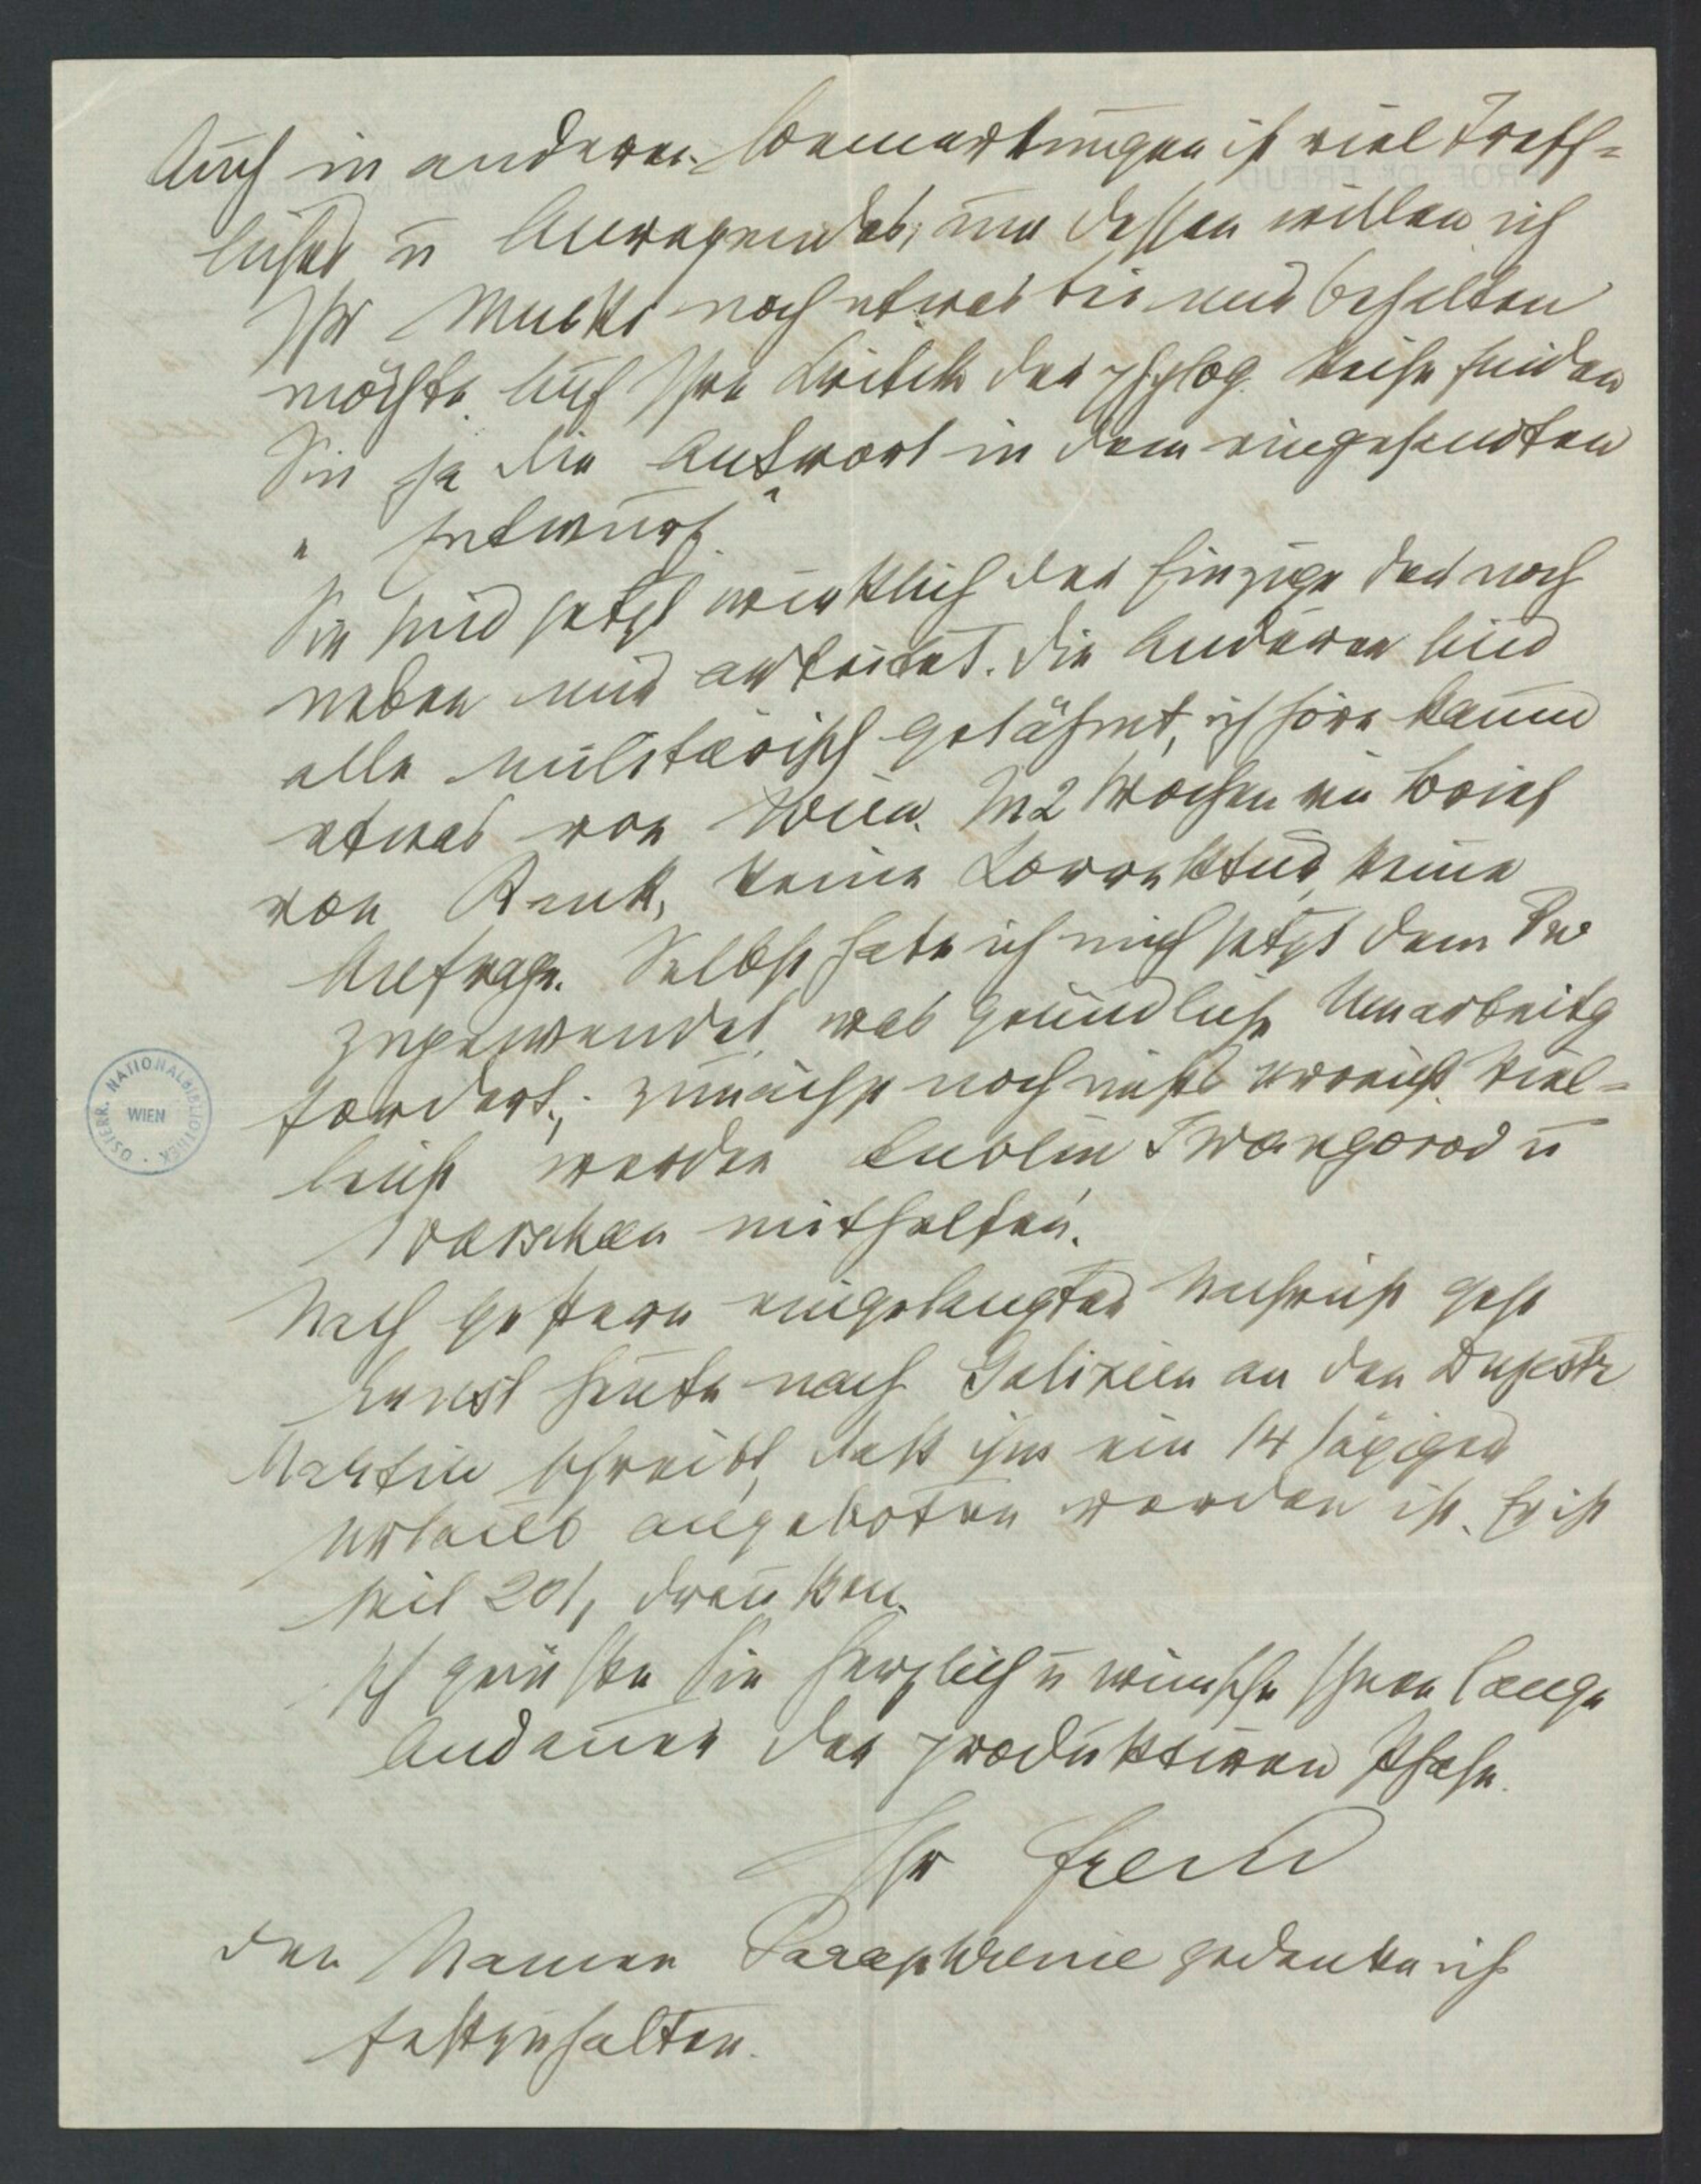 Auch in anderen Bemerkungen ist viel Treff=
liches u Anregendes, um dessen willen ich
Ihr Mskt noch etwas bei mir behalten
möchte. Auf Ihre Kritik der phylog. Reihe finden
Sie ja die Antwort in dem eingesandten
„Entwurf“.
Sie sind jetzt wirklich der Einzige der noch
neben mir arbeitet. Die Anderen sind
alle militärisch gelähmt, ich höre kaum
etwas von Wien. In 2 Wochen ein Brief
von Rank, keine Korrektur, keine
Anfrage. Selbst habe ich mich jetzt dem Bw
zugewendet, was gründliche Umarbeitg
fordert, zunächst noch nichts erreicht. Viel=
leicht werden Lublin Iwangorod u
Warschau mithelfen.
Nach gestern eingelangter Nachricht geht
Ernst heute nach Galizien an den Dnjestr
Martin schreibt, daß ihm ein 14 tägiger
Urlaub angeboten worden ist. Er ist
seit 20/1 draußen.
Ich grüße Sie herzlich u wünsche Ihnen lange
Andauer der produktiven Phase.
Ihr Freud
Den Namen Paraphrenie gedenke ich
festzuhalten.
ÖSTERR. NATIONALBIBLIOTHEK
WIEN